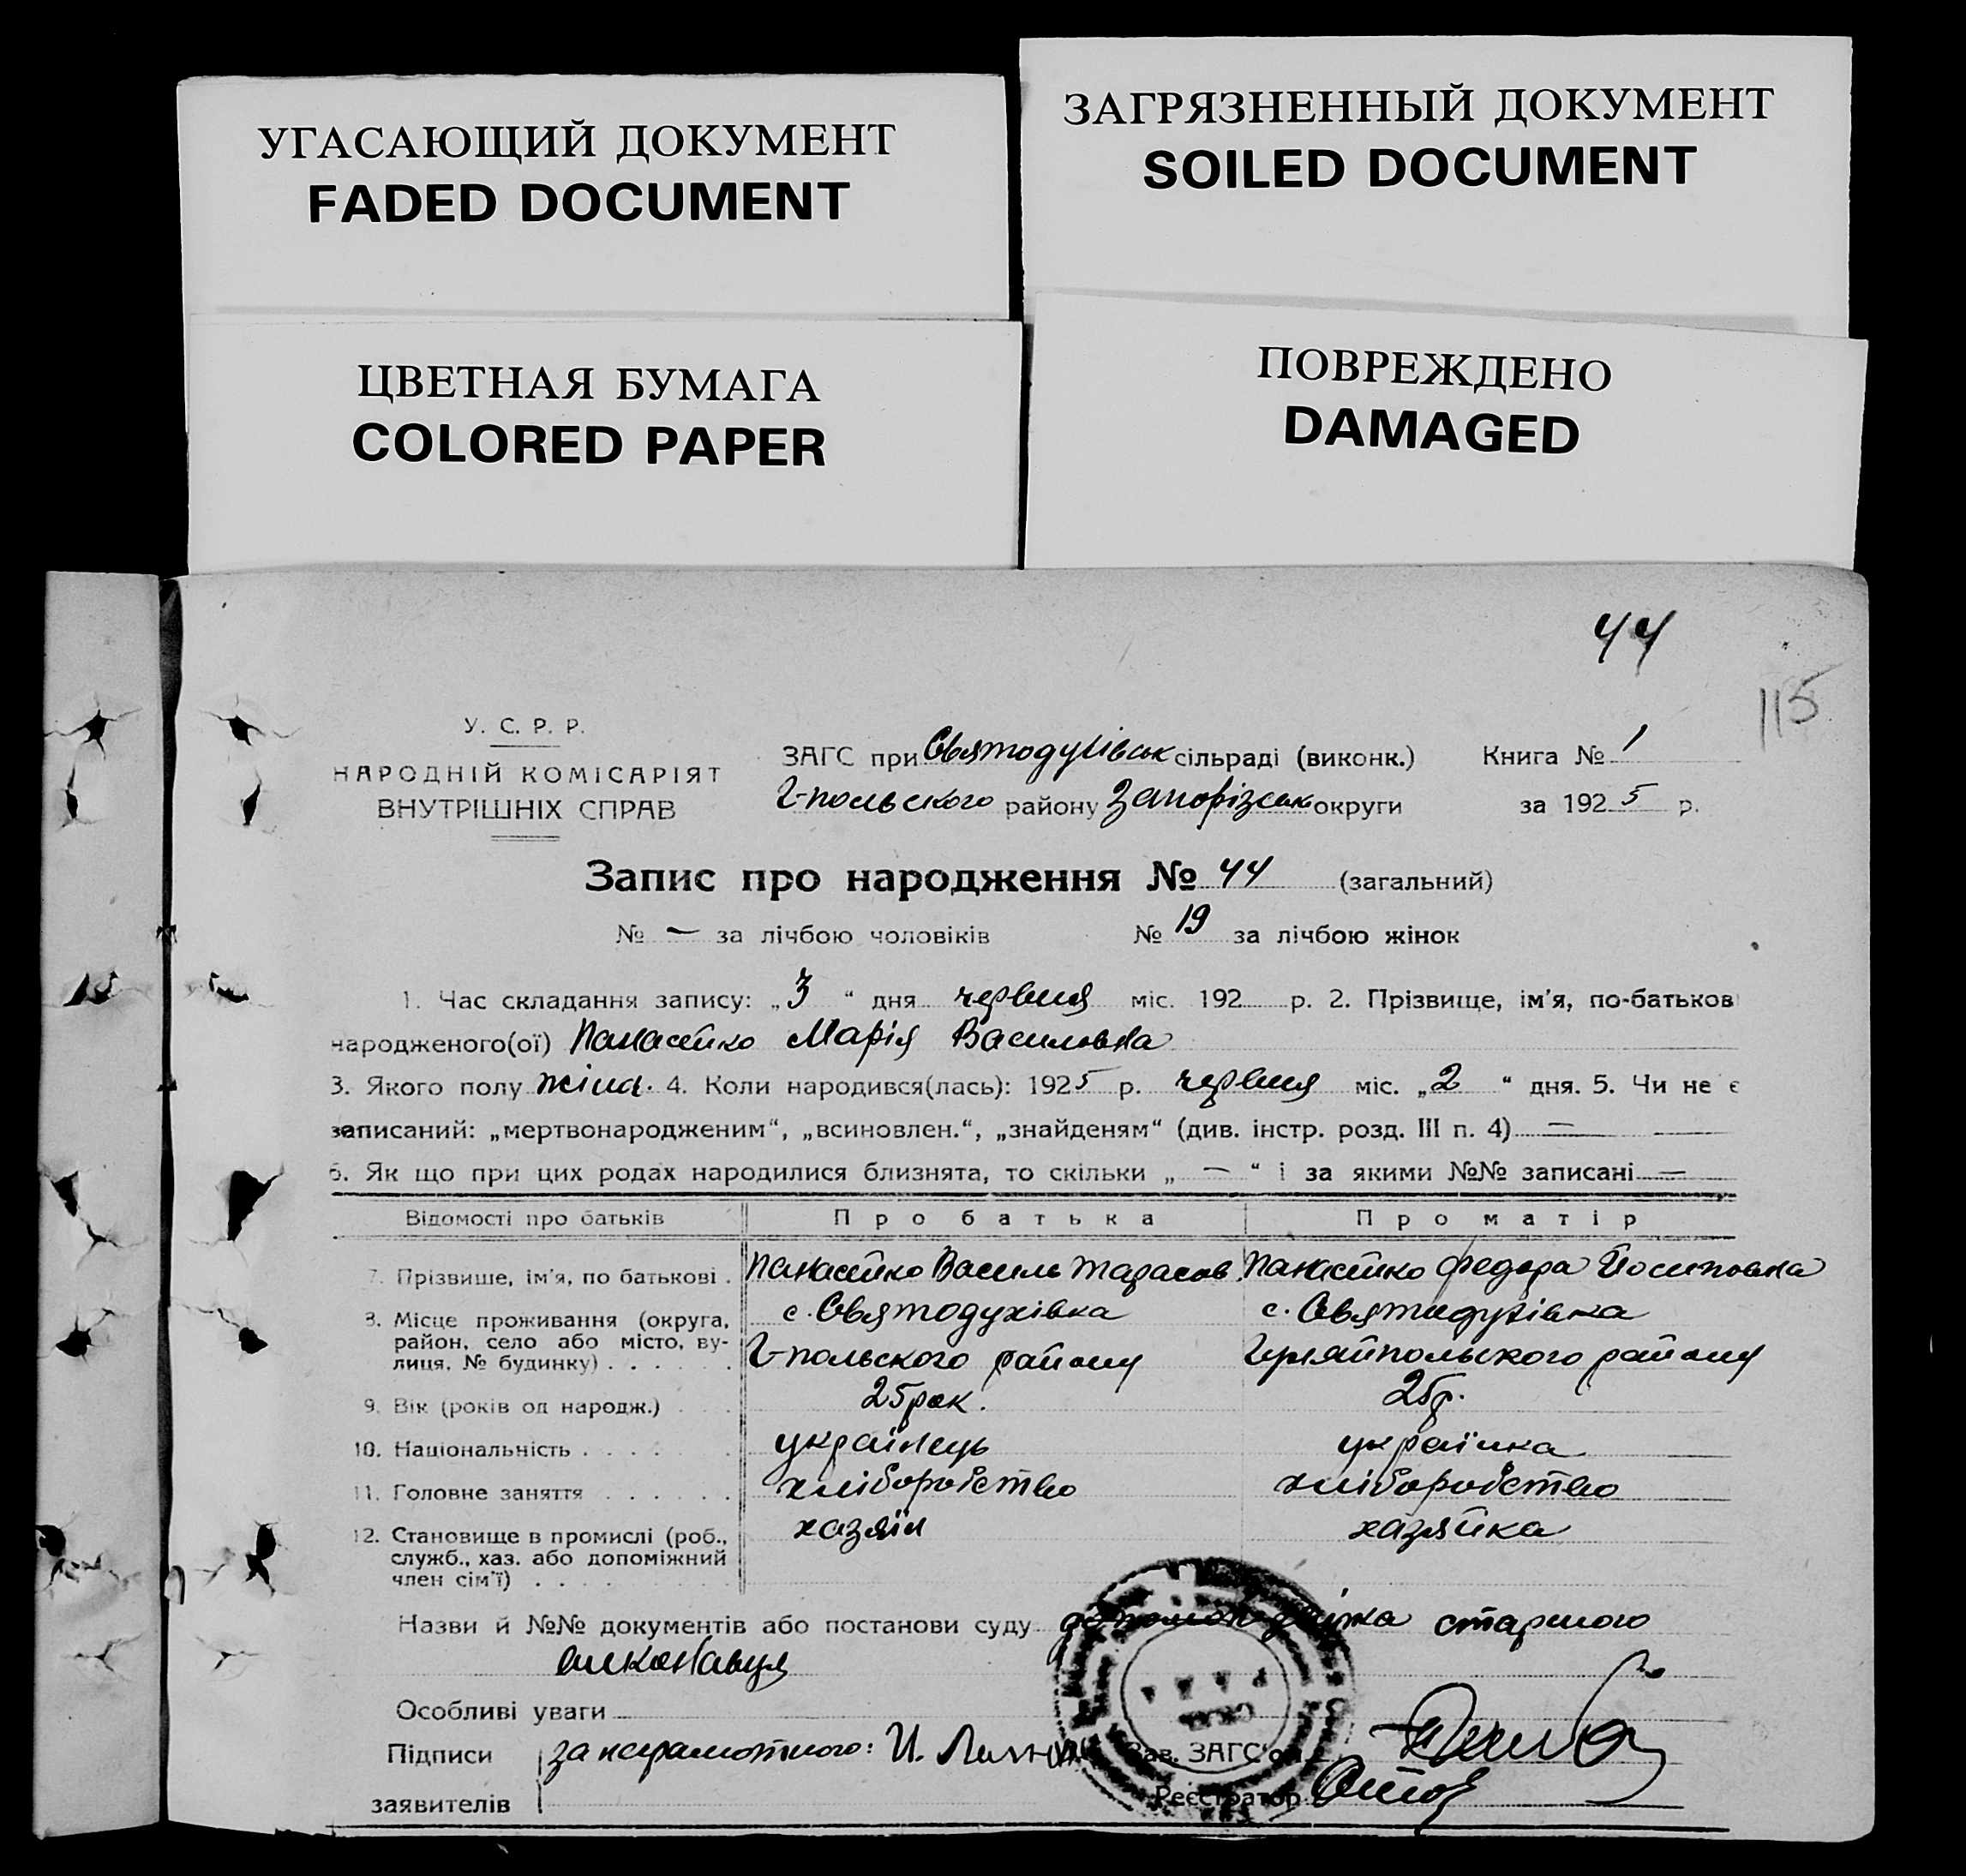 УГАСАЮЩИЙ ДОКУМЕНТ
FADED DOCUMENT
ЗАГРЯЗНЕННЫЙ ДОКУМЕНТ
SOILED DOCUMENT
ЦВЕТНАЯ БУМАГА
COLORED PAPER
ПОВРЕЖДЕНО
DAMAGED
44
115
У. С. Р. Р.
НАРОДНІЙ КОМІСАРІЯТ
ВНУТРІШНІХ СПРАВ
ЗАГС при Святодухівськ сільраді (виконк.)
Г-польського району Запорізськ округи
Книга № 1
за 1925 р.
Запис про народження № 44 (загальний)
№ — за лічбою чоловіків № 19 за лічбою жінок
1. Час складання запису: „3“ дня червня міс. 192 р. 2. Прізвище, ім'я, по-батьков
народженого(ої) Панасейко Марія Василовна
3. Якого полу жіноч. 4. Коли народився(лась): 1925 р. червня міс. „2“ дня. 5. Чи не є
записаний: „мертвонародженим“, „всиновлен.“, „знайденям“ (див. інстр. розд. III п. 4) —
6. Як що при цих родах народилися близнята, то скільки „—“ і за якими №№ записані —
Відомості про батьків Про батька Про матір
7. Прізвище, ім'я, по батькові . Панасейко Василь Тарасов. Панасейко Федора Йосиповна
8. Місце проживання (округа, с. Святодухівка с. Святодухівка
район, село або місто, ву-
лиця, № будинку) . . . . . . Г-польского району Гуляйпольського району
9. Вік (років од народж.) . . . 25 рок. 25 р.
10. Національність . . . . . . українець українка
11. Головне заняття . . . . . . хліборобство хліборобство
12. Становище в промислі (роб., хазяїн хазяйка
служб., хаз. або допоміжний
член сім'ї) . . . .
Назви й №№ документів або постанови суду старшого
виконавця
Особливі уваги
Підписи за неграмотного: И.
Зав. ЗАГС'ом
заявителів
Реєстратор